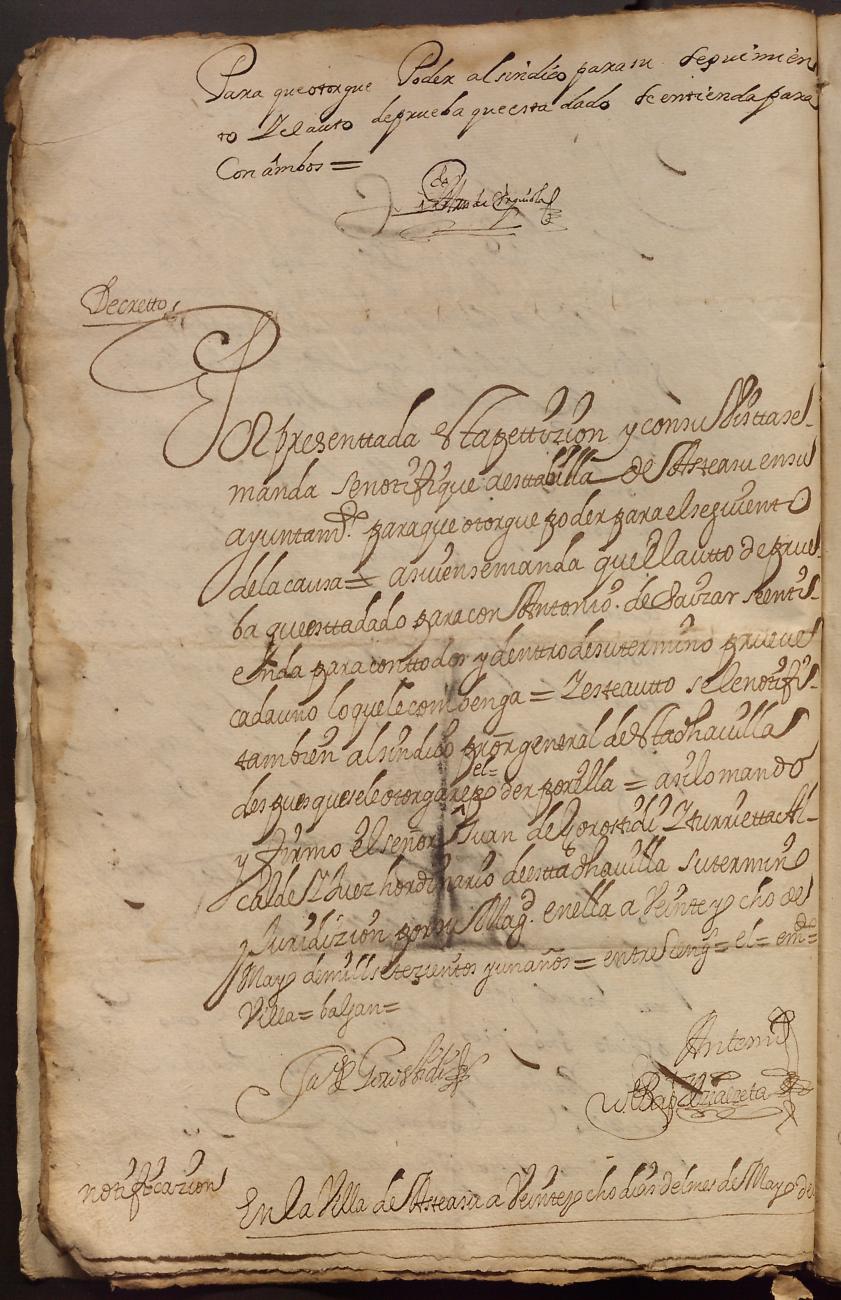 Para que otorgue Poder al sindico para su seguimien
to Y el auto de prueba que esta dado se entienda para
Con ambos =
Decretto
Por presenttada esta pettizion y con su Vista se
manda se notifique a esta billa de Asteasu en su
ayuntamto. para que otorgue poder para el seguiento
de la causa = assi vien se manda que el autto de prue
ba que esta dado para con Antonio de Sauzar se enti
enda para con ttodos y dentro de su termino prueue
cada uno lo que le combenga = Y este autto se le notifi
tambien al sindico pror general de esta dha uilla
despues que se le otorgare el poder por ella = asi lo mando
y firmo el señor Juan de Gorostidi Yturrietta Al
calde Y Juez hordinario de estta dha uilla su termino
y Juridizion por su Magd. en ella a Veinte y ocho de
Mayo de mill setezientos y un años = entre Reng = el = emdo =
Villa = balgan =
Jua Gorostidi
Antemi
notificazion
En la Villa de Asteasu a Veinte y ocho dias del mes de Mayo de